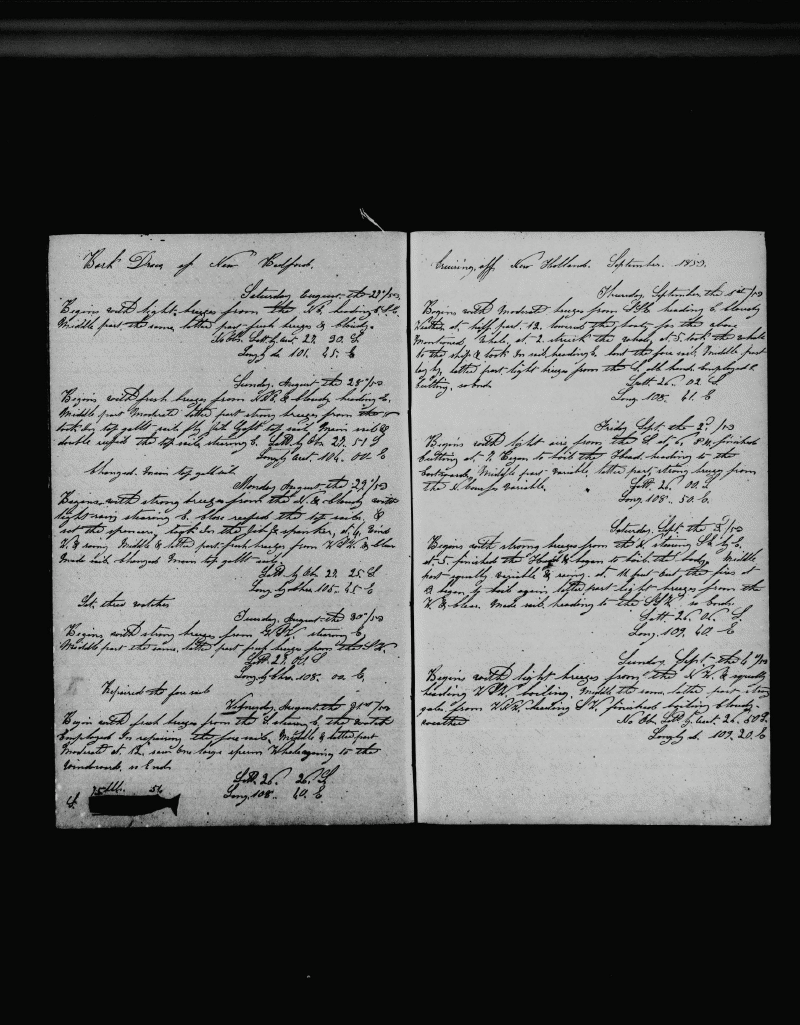 Bark Draco of New Bedford.
Saturday August the 27th/53
Begins with light breezes from the heading
Middle part the same, latter part fresh breezes & cloudy
No Obs. Latt by acct. 29. 30. S
Long by d. 101. 45. E
Sunday, August the 28th/53
Begins with fresh breezes from & cloudy heading E.
Middle part Moderate latter part strong breezes from
took in top gallt sail fly jib Gaft top sail Main sail &
double reefed the top sails steering E. Latt by Obs 29. 51 S
Long by acct. 104. 00 E
Changed main top gall sail
Monday August the 29th/53
Begins with strong breezes from the N. & cloudy with
light rain steering E. close reefed the top sails &
set the spencer, took in the Jib & spanker, at 4, wind
W. & rainy Middle & latter part fresh breezes from & clear
Made sail changed Main top gallt sail
Latt by Obs 29. 25. S
Long by chro. 105. 45 E
Set three watches
Tuesday August the 30th/53
Begins with strong breezes from steering E.
Middle part the same, latter part fresh breezes from the
Latt. 27. 01. S
Long by chro. 108. 00. E
Repaired the fore sail
Wednesday August the 31st/53
Begin with fresh breezes from the steering E. the watch
Employed in repairing the fore sail. Middle & latter part
Moderate at 12, saw one large sperm Whale going to the
windward. so Ends
Latt. 26. 26. S
Long. 108. 40. E
75 bbl. 54
Cruising off New Holland. September 1853.
Thursday September the 1st/53
Begins with Moderate breezes from heading E cloudy
Weather at half past 12. lowered the boats for the above
Mentioned Whale, at 2 struck the whale, at 5. took the whale
to the ship & took in sail heading E. but the fore sail Middle part
lay by, latter part light breezes from the S. all hands employed
Cutting, so ends.
Latt 26. 02. S
Long. 108. 41. E
Friday Sept. the 2d/53
Begins with light airs from the S at 6, P.M. finished
cutting at 7. Began to boil the Head. heading to the
Eastward, Middle part variable, latter part strong breezes from
the S. Courses variable.
Latt. 26. 00. S
Long. 108. 50. E.
Saturday Sept the 3d/53
Begins with strong breezes from the S. steering by E.
at 5. finished the Head & began to boil the body. Middle
part squally variable & rainy at 11 put out the fires at
began to boil again, latter part light breezes from the
& clear. Made sail. heading to the so Ends.
Latt 26. 06. S.
Long. 109. 40. E
Sunday Sept. the 4th/53
Begins with light breezes from the & squally
heading boiling. Middle the same. latter part strong
gale from heading finished boiling cloudy
weather
No Obs. Latt by acct. 26. 50 S.
Long by d. 109. 20. E